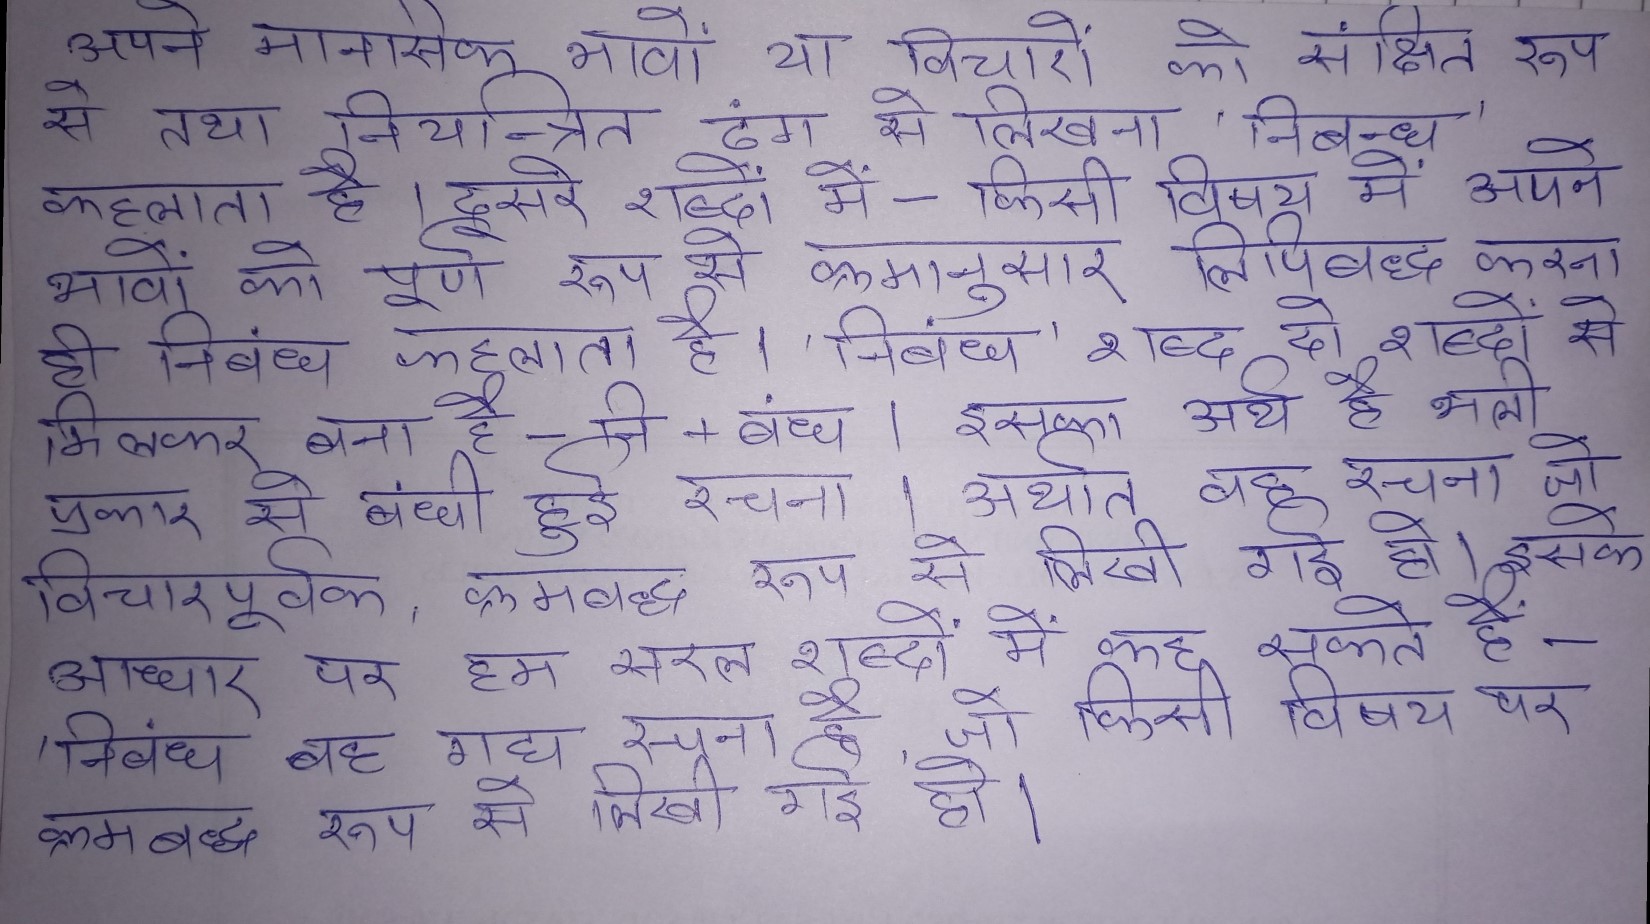 अपने मानसिक भावों या विचारों को संक्षित रूप
से तथा नियान्त्रित ढंग से लिखना 'निबन्ध'
कहलाता है । दूसरे शब्दों में – किसी विषय में अपने
भावों को पूर्ण रूप से क्रमानुसार लिपिबद्ध करना
ही निबंध कहलाता है । 'निबंध' शब्द दो शब्दों से
मिलकर बना है – नि + बंध । इसका अर्थ है भली
प्रकार से बंधी हुई रचना । अर्थात वह रचना जो
विचारपूर्वक, क्रमबद्ध रूप से लिखी गई हो । इसके
आधार पर हम सरल शब्दों में कह सकते हैं –
'निबंध वह गद्य रचना है, जो किसी विषय पर
क्रमबद्ध रूप से लिखी गई हो ।